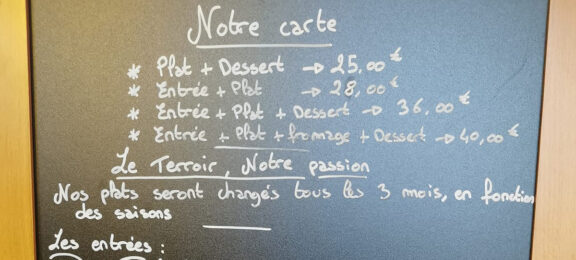 Notre carte
* Plat + Dessert → 25,00€
* Entrée + Plat → 28,00€
* Entrée + Plat + Dessert → 36.00€
* Entrée + Plat + fromage + Dessert → 40,00€
Le Terroir, Notre passion
Nos plats seront changés tous les 3 mois, en fonction
des saisons
Les entrées :